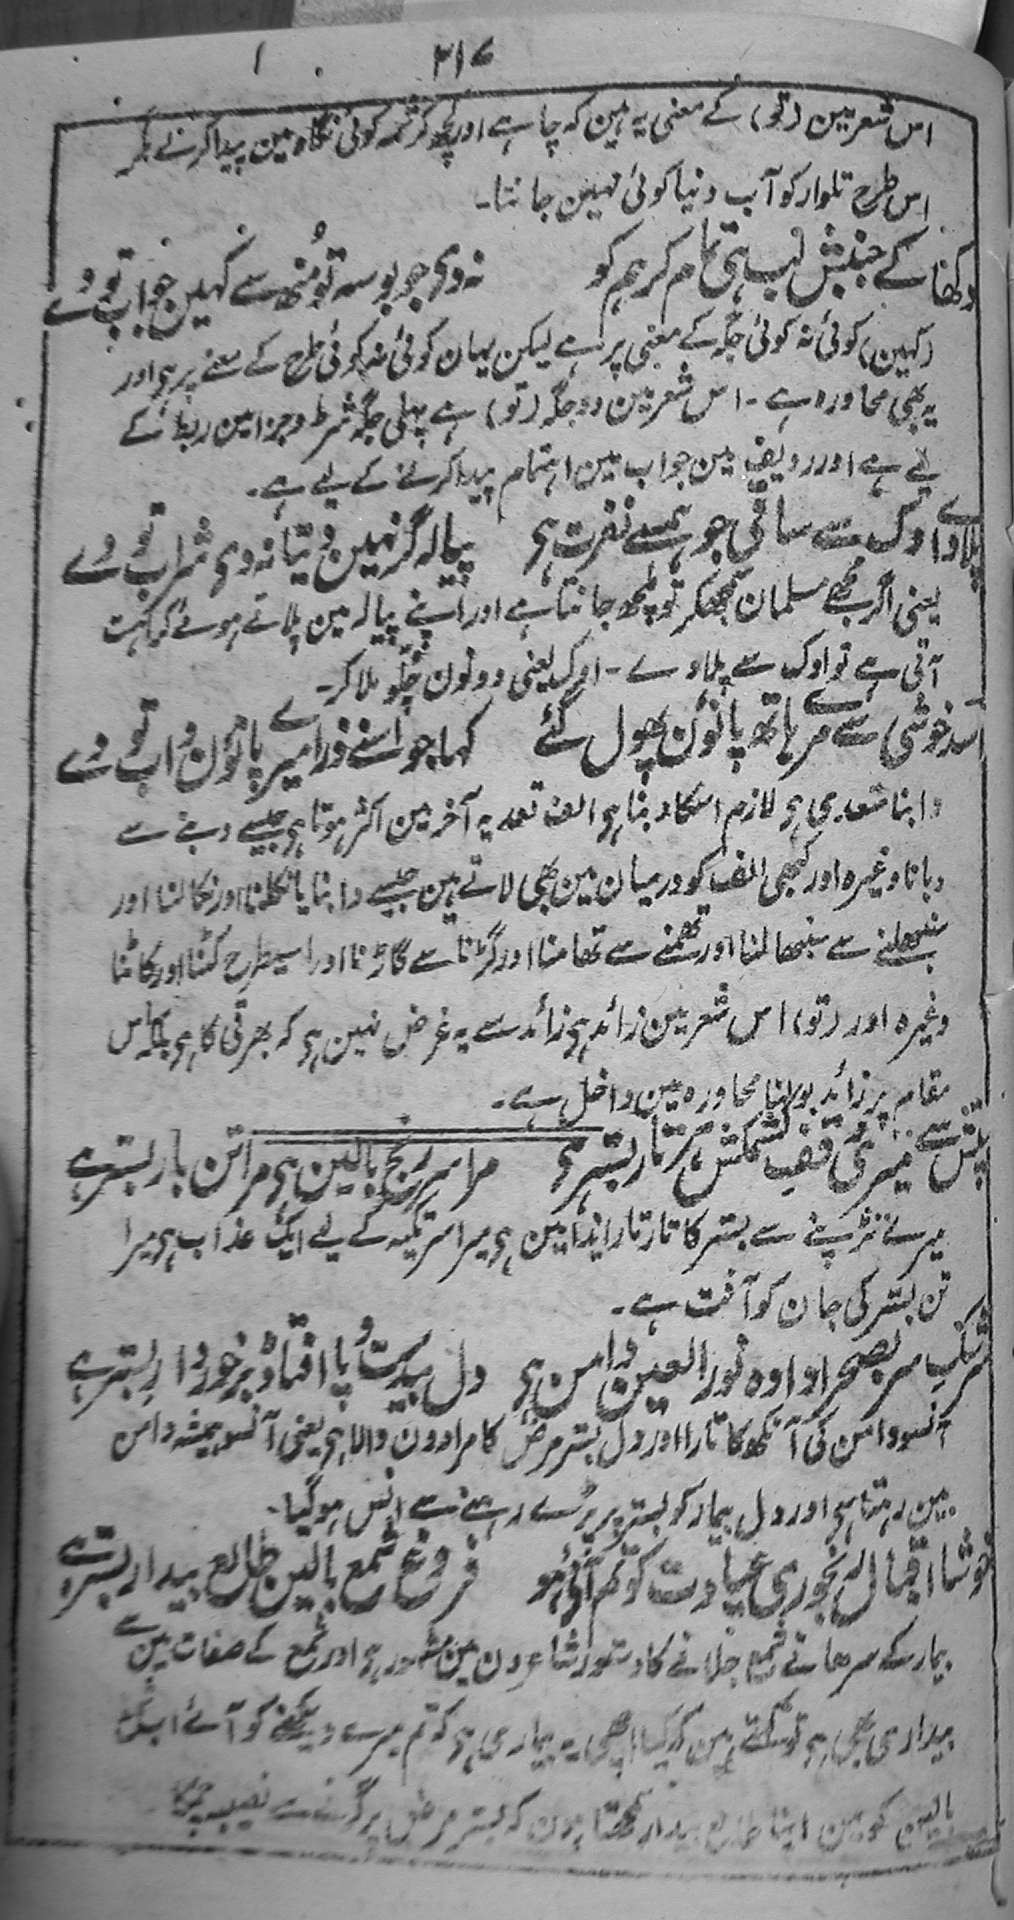 ۲۱۷
اس شعر مین (تو) کے معنی یہ ہین کہ چاہے اور کچھ کرشمہ کوئی نگاہ مین پیدا کرنے مگر
اس طرح تلوار کو آب دنیا کوئی نہین جانتا۔
دکھا کے جنبش لب ہی تمام کر ہم کو نہ دی جو بوسہ تو مُنھ سے کہین جواب تو دے
(کہین) کوئی نہ کوئی جگہ کے معنی پر ہے لیکن یہان کوئی نہ کوئی طرح کے معنے پر ہی اور
یہ بھی محاورہ ہے۔ اس شعر مین دو جگہ (تو) ہے پہلی جگہ شرط و جزا مین ربط کے
لیے ہے اور ردیف مین جواب مین اہتمام پیدا کرنے کے لیے ہے۔
پلادے اوک سے ساقی جو ہمسے نفرت ہی پیالہ گر نہین دیتا نہ دی شراب تو دے
یعنی اگر مجھے مسلمان سمجھکر تو ملچھ جانتا ہے اور اپنے پیالہ مین پلاتے ہوئے کراہت
آتی ہے تو اوک سے پلادے۔ اوک یعنی دونون چُلّو ملاکر۔
اسد خوشی سے مرے ہاتھ پانوُن پھول گئے کہا جو اسنے ذرا میرے پانوُن داب تو دے
دابنا متعدی ہی لازم اسکا دبنا ہی الف تعدیہ آخر مین اکثر ہوتا ہی جیسے دبنے سے
دبانا وغیرہ اور کبھی الف کو درمیان مین بھی لاتے ہین جیسے دابنا یا نکلنا اور نکالنا اور
سنبھلنے سے سنبھالنا اور تھمنے سے تھامنا اور گڑنا سے گاڑنا اور اسیطرح کٹنا اور کاٹنا
وغیرہ اور (تو) اس شعر مین زائد ہی زائد سے یہ غرض نہین ہی کہ بھرتی کا ہی بلکہ اس
مقام پر زائد بولنا محاورہ مین داخل ہے۔
تپش سے میری وقف کشمکش ہر تار بستر ہی مرا سر رنج بالین ہی مرا تن بار بستر ہے
میرے تڑپنے سے بستر کا تار تار ایذا مین ہی میرا سر تکیہ کے لیے ایک عذاب ہی میرا
تن بستر کی جان کو آفت ہے۔
سرشک سر بصحرا دادہ نور العین دامن ہی دل بیدست و پا افتادہ برخوردار بستر ہے
آنسو دامن کی آنکھ کا تارا اور دل بستر مرض کا مرادون والا ہی یعنی آنسو ہمیشہ دامن
مین رہتا ہی اور دل بیمار کو بستر پر پڑے رہنے سے انس ہوگیا۔
خوشا اقبال رنجوری عیادت کو تم آئی ہو فروغ شمع بالین طالع بیدار بستر ہے
بیمار کے سرھانے شمع جلانے کا دستور شاعرون مین مشہور ہی اور شمع کے صفات مین سے
بیداری بھی ہی تو کہتے ہین کہ کیا اچھی یہ بیماری ہی کہ تم میرے دیکھنے کو آئے اب شمع
بالین کو مین اپنا طالع بیدار سمجھتا ہون کہ بستر مرض پر گرنے سے نصیبہ چمکا